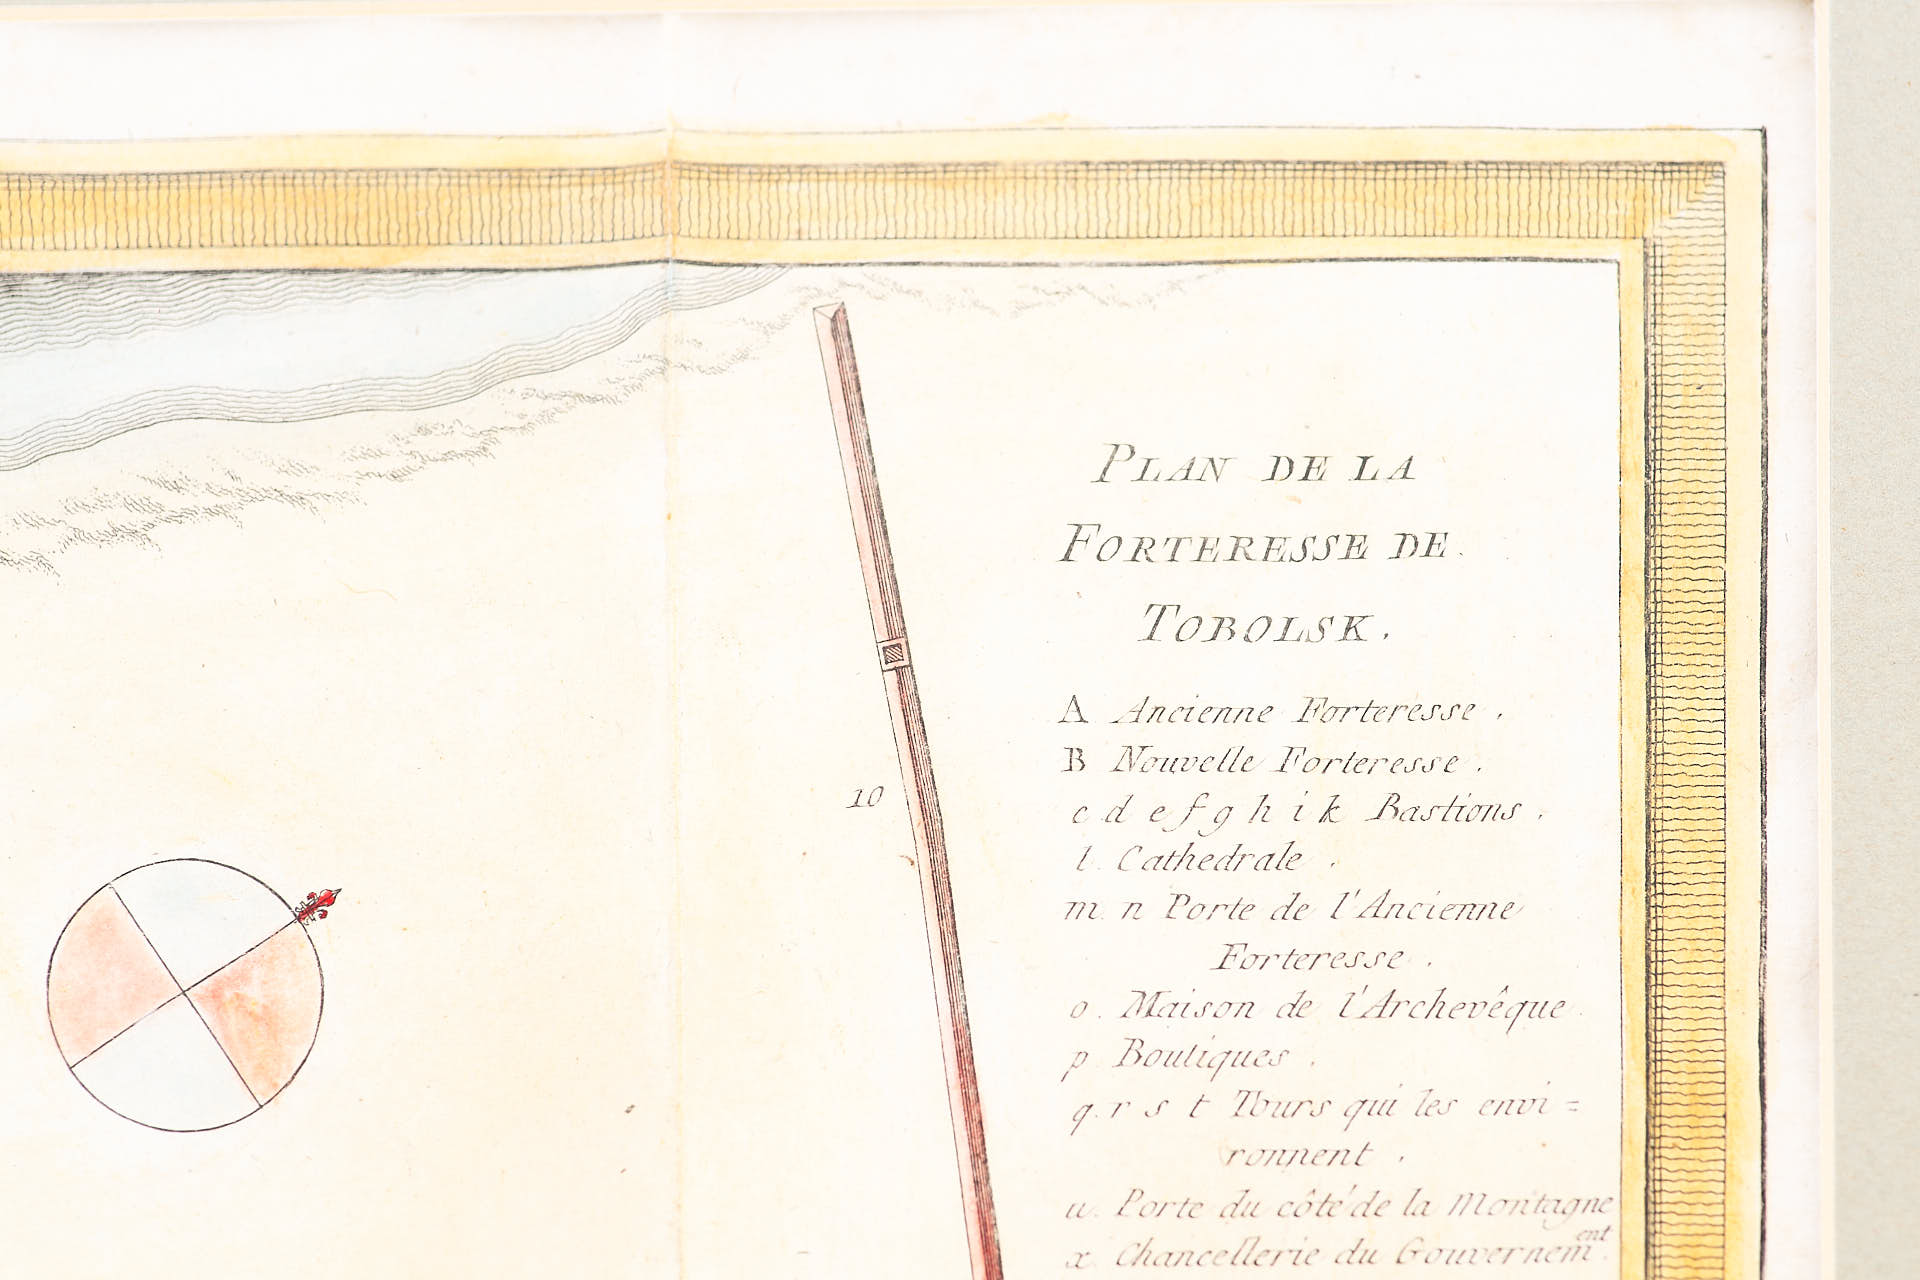 PLAN DE LA
FORTERESSE DE
TOBOLSK.
A Ancienne Forteresse.
B Nouvelle Forteresse.
c d e f g h i k Bastions.
l. Cathedrale.
m. n Porte de l'Ancienne
Forteresse.
o. Maison de l'Archevêque.
p Boutiques.
q. r s t Tours qui les envi=
ronnent.
u. Porte du côté de la Montagne
x Chancellerie du Gouvernem.ent
10